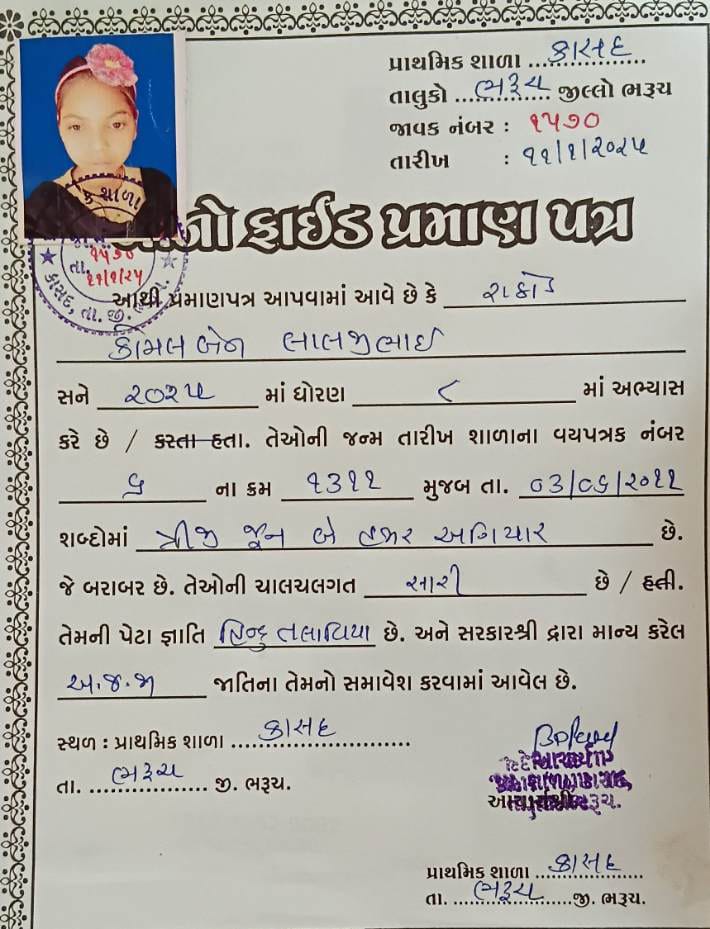 પ્રાથમિક શાળા કાસદ
તાલુકો ભરૂચ જીલ્લો ભરૂચ
જાવક નંબર : ૧૫૭૦
તારીખ : ૨૧/૧/૨૦૨૫
ફાઈડ પ્રમાણ પત્ર
૧૫૭૦
તા. ૨૧/૧/૨૫
કાસદ, તા. જી.
આથી પ્રમાણપત્ર આપવામાં આવે છે કે રાઠોડ
કોમલબેન લાલજીભાઈ
સને ૨૦૨૫ માં ધોરણ ૮ માં અભ્યાસ
કરે છે / કરતા હતા. તેઓની જન્મ તારીખ શાળાના વયપત્રક નંબર
૬ ના ક્રમ ૧૩૧૨ મુજબ તા. ૦૩/૦૬/૨૦૧૧
શબ્દોમાં ત્રીજી જૂન બે હજાર અગિયાર છે.
જે બરાબર છે. તેઓની ચાલચલગત સારી છે / હતી.
તેમની પેટા જ્ઞાતિ હિન્દુ તલાવિયા છે. અને સરકારશ્રી દ્વારા માન્ય કરેલ
અ.જ.જા જાતિના તેમનો સમાવેશ કરવામાં આવેલ છે.
સ્થળ : પ્રાથમિક શાળા કાસદ
તા. ભરૂચ જી. ભરૂચ.
પ્રાથમિક શાળા કાસદ
તા. ભરૂચ જી. ભરૂચ.